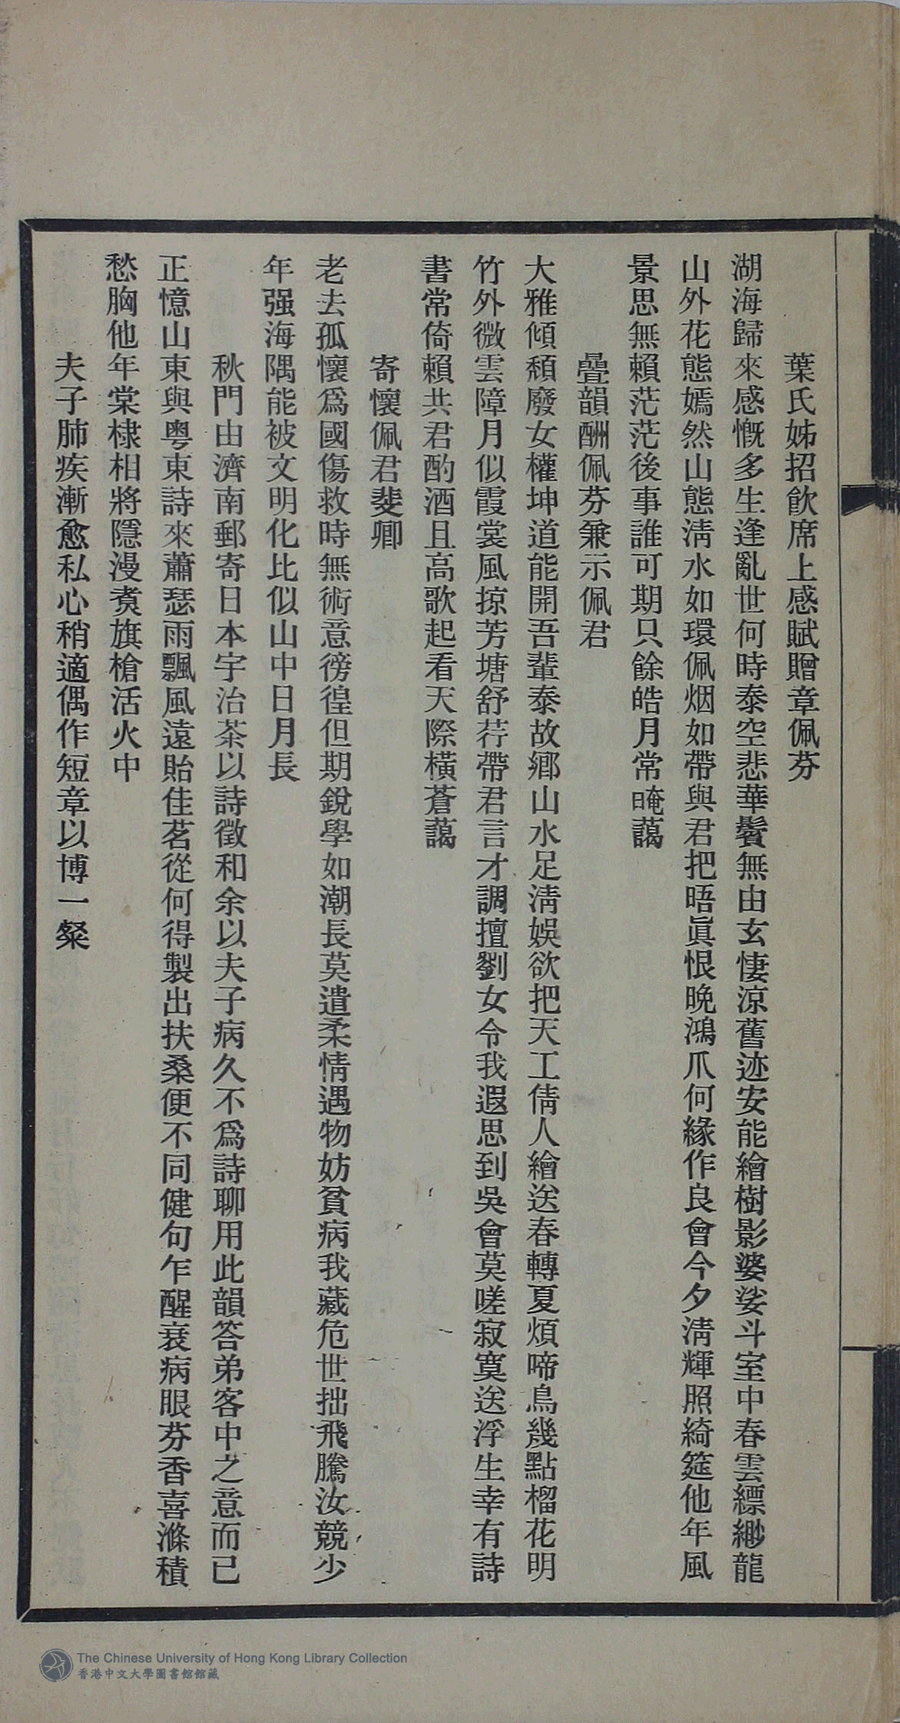 葉氏姊招飲席上感賦贈章佩芬
湖海歸來感慨多生逢亂世何時泰空悲華鬢無由玄悽涼舊迹安能繪樹影婆娑斗室中春雲縹緲龍
山外花態嫣然山態淸水如環佩烟如帶與君把晤眞恨晚鴻爪何緣作良會今夕淸輝照綺筵他年風
景思無賴茫茫後事誰可期只餘皓月常晻藹
疊韻酬佩芬兼示佩君
大雅傾頹廢女權坤道能開吾輩泰故鄉山水足淸娛欲把天工倩人繪送春轉夏煩啼鳥幾點榴花明
竹外微雲障月似霞裳風掠芳塘舒荇帶君言才調擅劉女令我遐思到吳會莫嗟寂寞送浮生幸有詩
書常倚賴共君酌酒且高歌起看天際橫蒼藹
寄懷佩君斐卿
老去孤懷爲國傷救時無術意徬徨但期銳學如潮長莫遣柔情遇物妨貧病我藏危世拙飛騰汝競少
年强海隅能被文明化比似山中日月長
秋門由濟南郵寄日本宇治茶以詩徵和余以夫子病久不爲詩聊用此韻答弟客中之意而已
正憶山東與粵東詩來蕭瑟雨飄風遠貽佳茗從何得製出扶桑便不同健句乍醒衰病眼芬香喜滌積
愁胸他年棠棣相將隱漫煑旗槍活火中
夫子肺疾漸愈私心稍適偶作短章以博一粲
The Chinese University of Hong Kong Library Collection
香港中文大學圖書館館藏